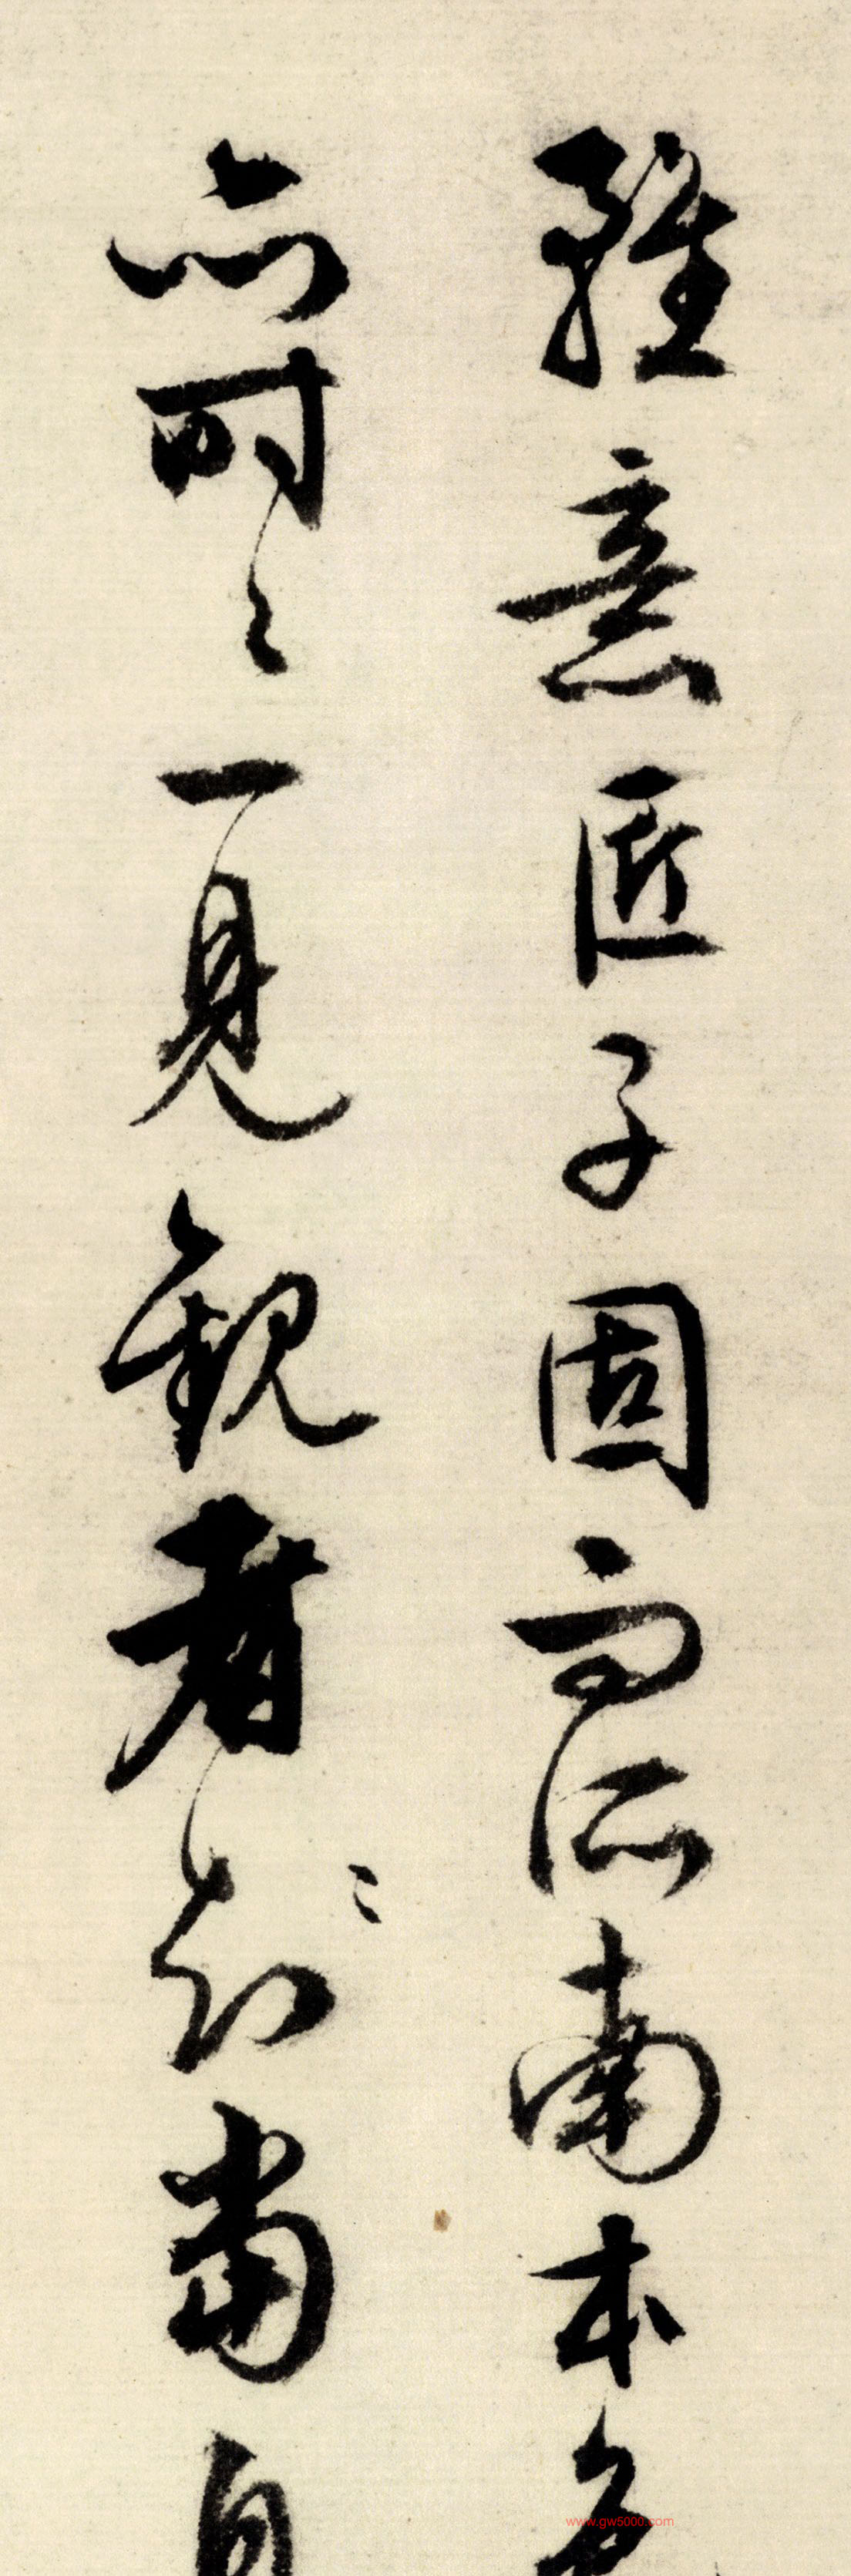 雖意匠子固而所南本色
亦時〻一見觀者當自
www.gw5000.com